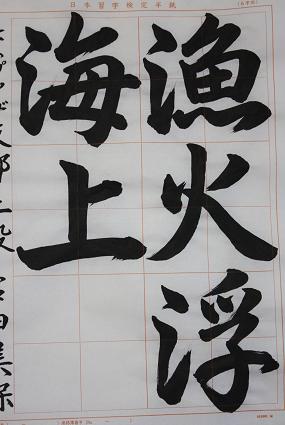 日本習字検定半紙
漁火浮
海上
支部二段 宮田美保